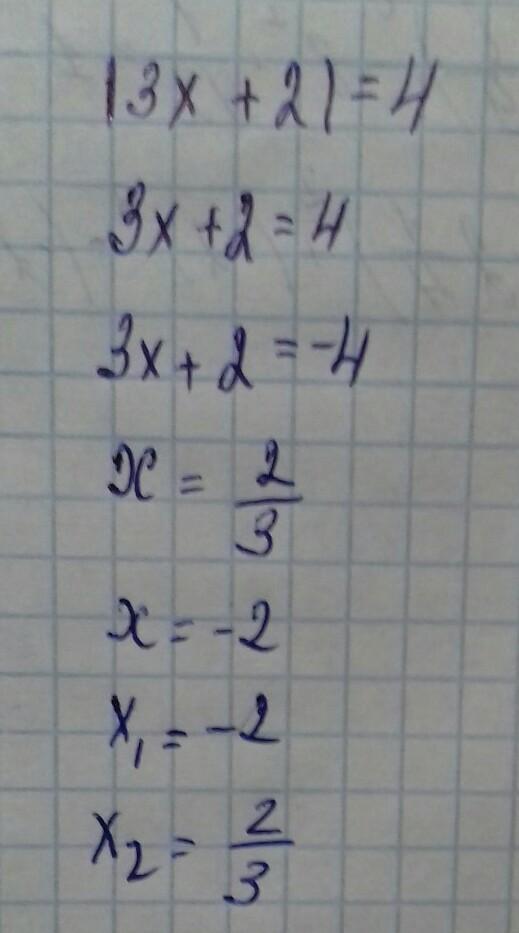 |3x + 2| = 4
3x + 2 = 4
3x + 2 = -4
x = 2/3
x = -2
x₁ = -2
x₂ = 2/3